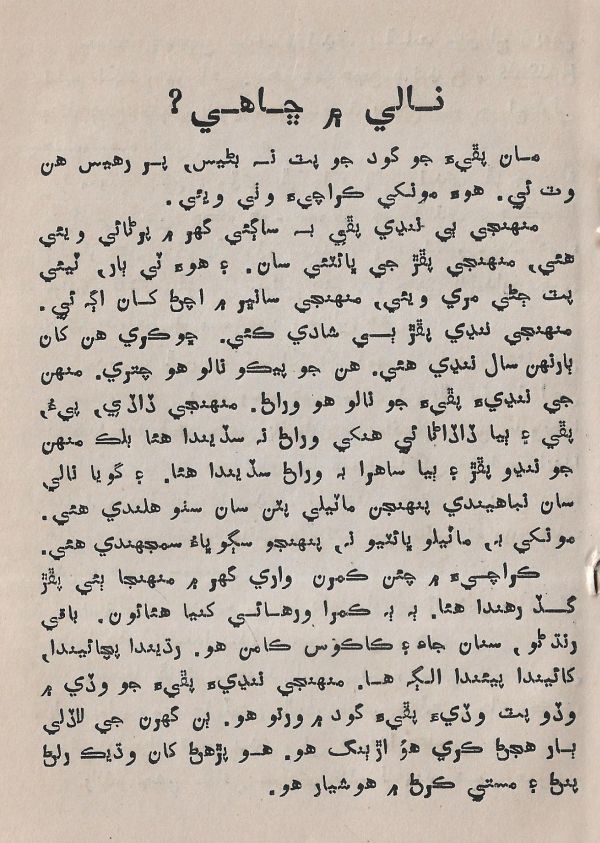 نالي ۾ ڇاهي؟
مان پڦيءَ جو گود جو پٽ نہ بڻيس، پر رهيس هن
وٽ ئي. هوءَ مونکي ڪراچيءَ وٺي ويئي.
منهنجي ٻي ننڍي پڦي بہ ساڳئي گهر ۾ پرڻائي ويئي
هئي، منهنجي پڦڙ جي ڀائٽئي سان. ۽ هوءَ ٽي ٻار، ٽيئي
پٽ ڄڻي مري ويئي، منهنجي سانڀر ۾ اچڻ کان اڳ ئي.
منهنجي ننڍي پڦڙ ٻي شادي ڪئي. ڇوڪري هن کان
ٻارنهن سال ننڍي هئي. هن جو پيڪو نالو هو چتري. منهن
جي ننڍيءَ پڦيءَ جو نالو هو وراڻ. منهنجي ڏاڏي، پيءُ،
پڦي ۽ ٻيا ڏاڏاڻا ئي هنکي وراڻ نہ سڏيندا هئا بلڪ منهن
جو ننڍو پڦڙ ۽ ٻيا ساهرا بہ وراڻ سڏيندا هئا. ۽ گويا نالي
سان نباهيندي پنهنجن ماٽيلي پٽن سان سٺو هلندي هئي.
مونکي بہ، ماٽيلو ڀائٽيو نہ، پنهنجو سڳو ڀاءُ سمجهندي هئي.
ڪراچيءَ ۾ چئن ڪمرن واري گهر ۾ منهنجا ٻئي پڦڙ
گڏ رهندا هئا. ٻہ ٻہ ڪمرا ورهائي کنيا هئائون. باقي
رنڌڻو، سنان جاءِ ۽ ڪاڪوس ڪامن هو. رڌيندا پچائيندا،
کائيندا پيئندا الڳ هئا. منهنجي ننڍيءَ پڦيءَ جو وڏي ۾
وڏو پٽ وڏيءَ پڦيءَ گود ۾ ورتو هو. ٻن گهرن جي لاڏلي
ٻار هجڻ ڪري هوُ اڙٻنگ هو. هو پڙهڻ کان وڌيڪ رلڻ
پنڻ ۽ مستي ڪرڻ ۾ هوشيار هو.